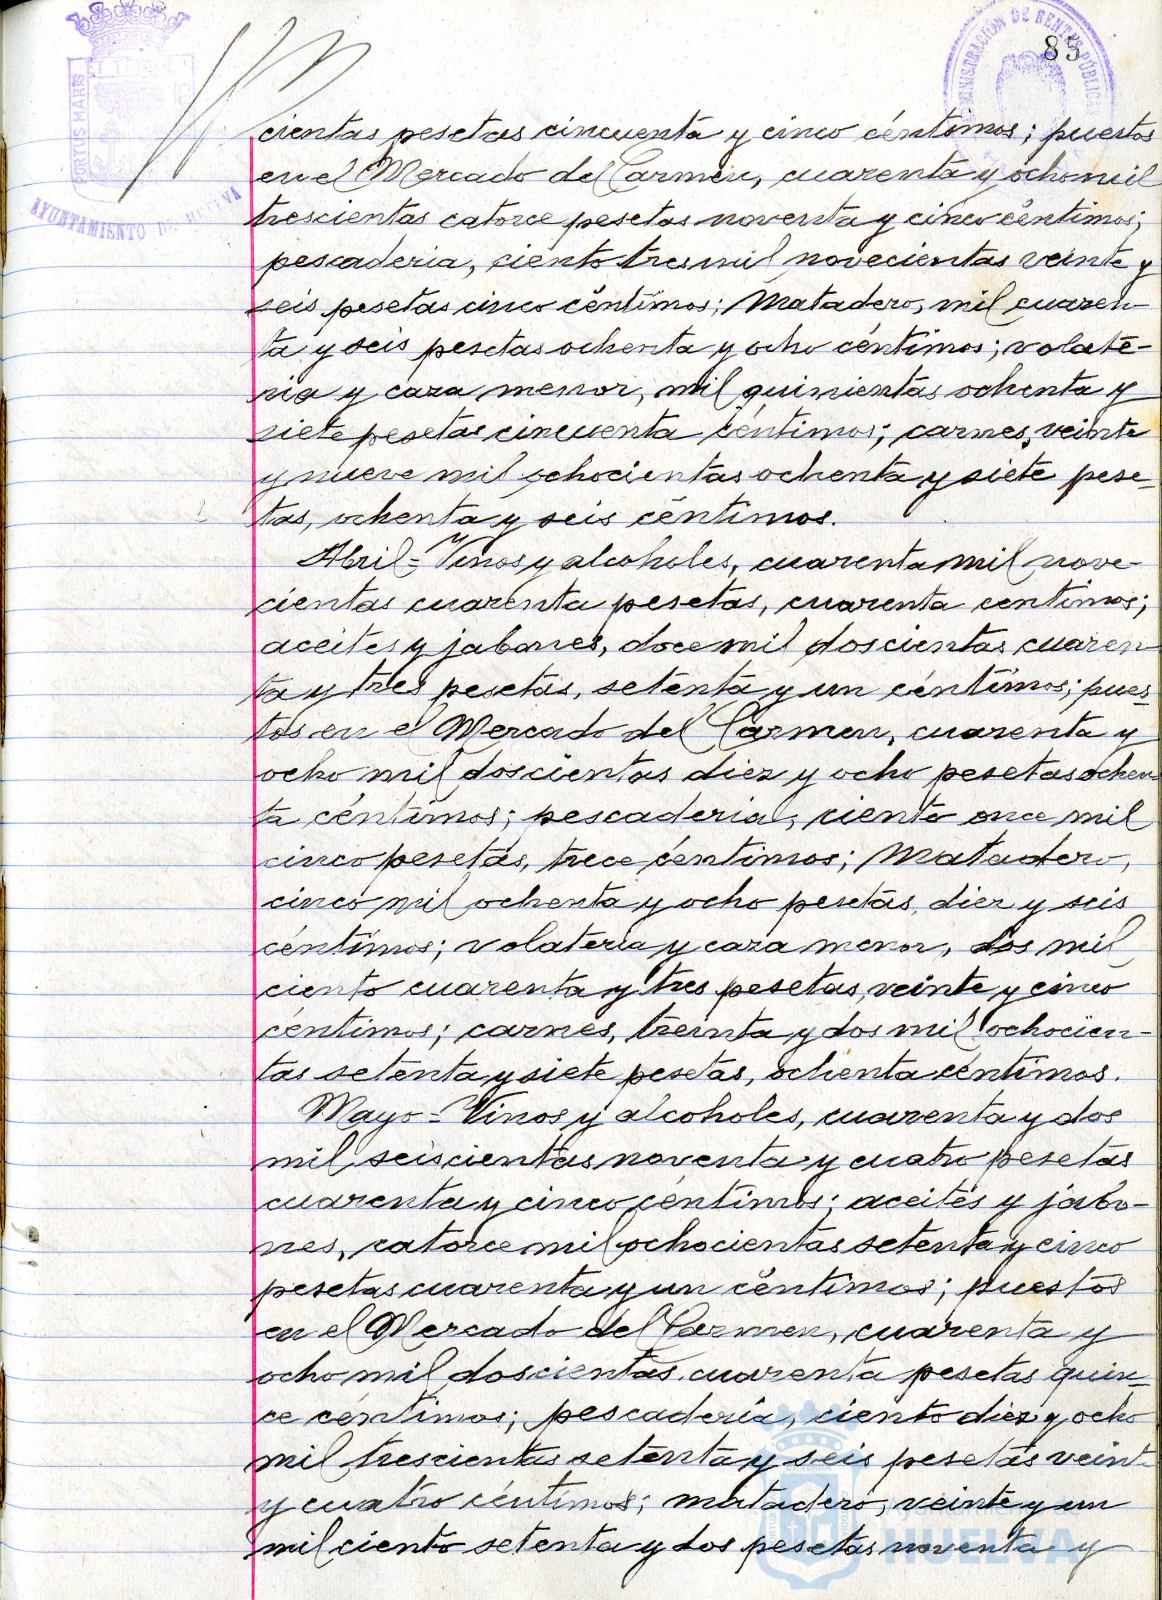 85
PORTUS MARIS
AYUNTAMIENTO DE HUELVA
ADMINISTRACIÓN DE RENTAS PÚBLICAS
cientas pesetas cincuenta y cinco céntimos; puestos
en el Mercado del Carmen, cuarenta y ocho mil
trescientas catorce pesetas noventa y cinco céntimos;
pescaderia, ciento tres mil novecientas veinte y
seis pesetas cinco céntimos; Matadero, mil cuaren-
ta y seis pesetas ochenta y ocho céntimos; volate-
ria y caza menor, mil quinientas ochenta y
siete pesetas cincuenta céntimos; carnes, veinte
y nueve mil ochocientas ochenta y siete pese-
tas, ochenta y seis céntimos.
Abril = Vinos y alcoholes, cuarenta mil nove-
cientas cuarenta pesetas, cuarenta centimos;
aceites y jabones, doce mil doscientas cuaren
ta y tres pesetas, setenta y un céntimos; pues-
tos en el Mercado del Carmen, cuarenta y
ocho mil doscientas diez y ocho pesetas ochen-
ta céntimos; pescaderia, ciento once mil
cinco pesetas, trece céntimos; Matadero,
cinco mil ochenta y ocho pesetas, diez y seis
céntimos; volateria y caza menor, dos mil
ciento cuarenta y tres pesetas, veinte y cinco
céntimos; carnes, treinta y dos mil ochocien-
tas setenta y siete pesetas, ochenta céntimos.
Mayo = Vinos y alcoholes, cuarenta y dos
mil seiscientas noventa y cuatro pesetas
cuarenta y cinco céntimos; aceites y jabo-
nes, catorce mil ochocientas setenta y cinco
pesetas cuarenta y un céntimos; puestos
en el Mercado del Carmen, cuarenta y
ocho mil doscientas cuarenta pesetas quin-
ce céntimos; pescaderia, ciento diez y ocho
mil trescientas setenta y seis pesetas veint-
y cuatro céntimos; matadero, veinte y un
mil ciento setenta y dos pesetas noventa y
Ayuntamiento de
HUELVA